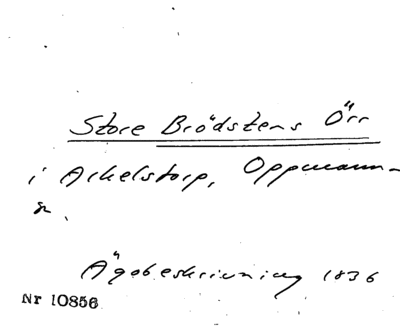 Store Brödstens Örr
i Arkelstorp, Oppmanna-
sn.
Ägobeskrivning 1836
Nr 10856